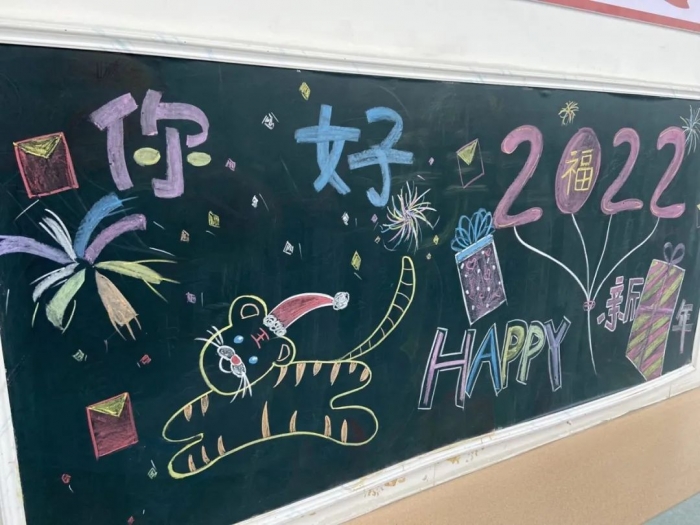 你好
2022
福
王
HAPPY
新年